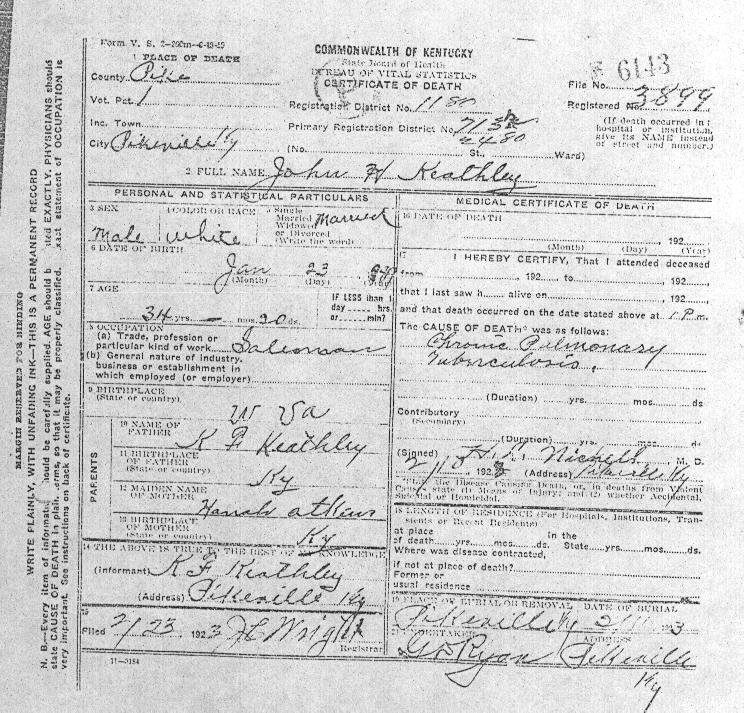 Form V. S. 2-200m-6-19-19
1 PLACE OF DEATH
County Pike
Vot. Pct. 1
Inc. Town
City Pikeville Ky
COMMONWEALTH OF KENTUCKY
State Board of Health
BUREAU OF VITAL STATISTICS
CERTIFICATE OF DEATH
Registration District No. 1180
Primary Registration District No.
2480
(No. St., Ward)
6143
File No.
Registered No. 3899
(If death occurred in
hospital or institution,
give its NAME instead
of street and number.)
2 FULL NAME John H Keathley
PERSONAL AND STATISTICAL PARTICULARS
3 SEX
Male
4 COLOR OR RACE
White
5 Single
Married
Widowed
or Divorced
(Write the word)
Married
6 DATE OF BIRTH
Jan 23
(Month) (Day)
7 AGE
34 yrs. - mos. 20 ds.
IF LESS than 1
day hrs.
or min?
8 OCCUPATION
(a) Trade, profession or
particular kind of work Salesman
(b) General nature of industry,
business or establishment in
which employed (or employer)
9 BIRTHPLACE
(State or country)
W Va
PARENTS
10 NAME OF
FATHER
K F Keathley
11 BIRTHPLACE
OF FATHER
(State or country)
Ky
12 MAIDEN NAME
OF MOTHER
Hanah Atkins
13 BIRTHPLACE
OF MOTHER
(State or country)
Ky
14 THE ABOVE IS TRUE TO THE BEST OF MY KNOWLEDGE
(Informant) K F Keathley
(Address) Pikeville Ky
15
Filed 2/23 1923 Wright
Registrar
11-3184
MEDICAL CERTIFICATE OF DEATH
16 DATE OF DEATH
, 192
(Month) (Day) (Year)
17
I HEREBY CERTIFY, That I attended deceased
from , 192 to , 192
that I last saw h alive on , 192
and that death occurred on the date stated above at 1 P.m.
The CAUSE OF DEATH* was as follows:
Chronic Pulmonary
Tuberculosis.
(Duration) yrs. mos. ds
Contributory
(Secondary)
(Duration) yrs. mos. ds
(Signed) M. D.
192 (Address) Pikeville Ky
the Disease Causing Death, or, in deaths from Violent
Causes, state (1) Means of Injury; and (2) whether Accidental,
Suicidal or Homicidal.
18 LENGTH OF RESIDENCE (For Hospitals, Institutions, Transients
or Recent Residents)
at place
of death yrs. mos. ds.
In the
State yrs. mos. ds.
Where was disease contracted,
if not at place of death?
Former or
usual residence
19 PLACE OF BURIAL OR REMOVAL DATE OF BURIAL
Pikeville Ky 2/11 1923
20 UNDERTAKER ADDRESS
Ryan Pikeville
Ky
MARGIN RESERVED FOR BINDING
WRITE PLAINLY, WITH UNFADING INK—THIS IS A PERMANENT RECORD
N. B.—Every item of information should be carefully supplied. AGE should be stated EXACTLY. PHYSICIANS should
state CAUSE OF DEATH in plain terms, so that it may be properly classified. Exact statement of OCCUPATION is
very important. See instructions on back of certificate.